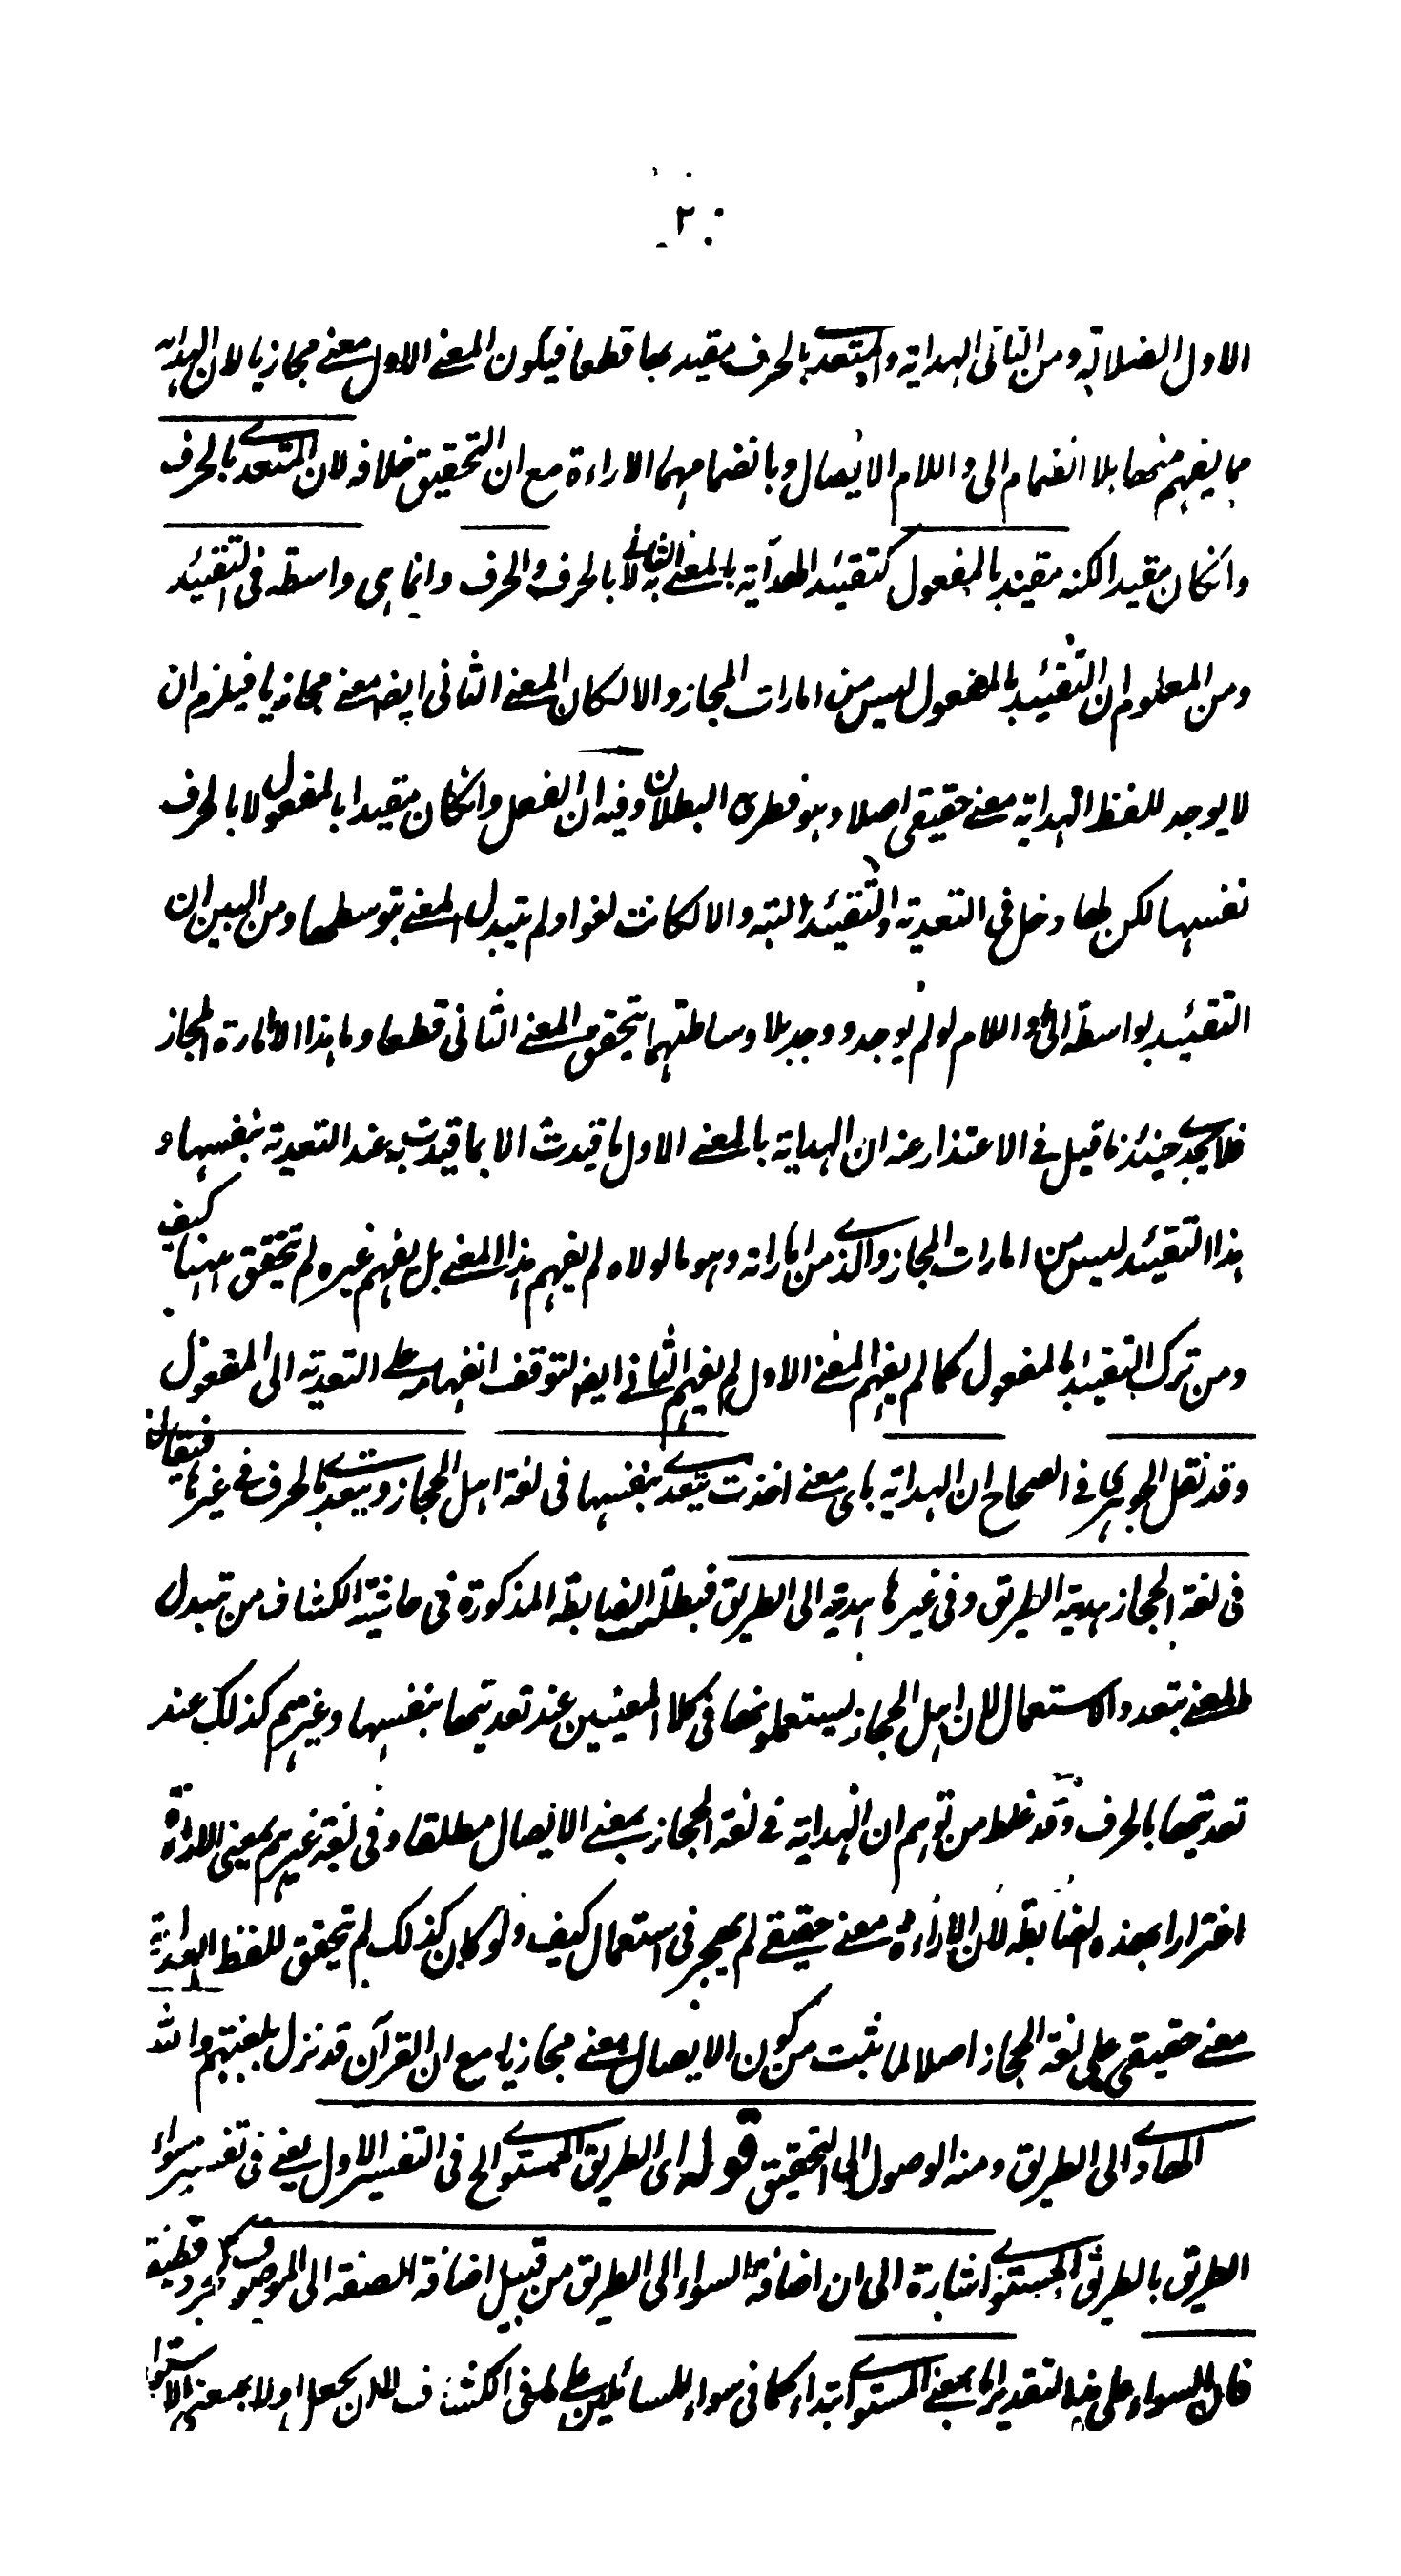 ٢٠
الاول الضلالة ومن الثانى الهداية والمتعدے بالحرف مقيد بها قطعا فيكون المعنے الاول معنے مجازيا لان الهداية
مما يفهم منها بلا انضمام الى واللام الايصال وبانضمامهما الاراءة مع ان التحقيق خلافه لان المتعدے بالحرف
وانكان مقيدا لكنه مقيد بالمفعول كتقييد الهداية بالمعنے الثانے به لا بالحرف والحرف وانما هى واسطة فى التقييد
ومن المعلوم ان التقييد بالمفعول ليس من امارات المجاز والا لكان المعنے الثانى ايضا معنے مجازيا فيلزم ان
لا يوجد للفظ الهداية معنے حقيقى اصلا وهو فطرى البطلان وفيه ان الفعل وانكان مقيدا بالمفعول لا بالحرف
نفسها لكن لها دخل فى التعدية والتقييد البتة والا لكانت لغوا ولم يتبدل المعنے بتوسطها ومن البين ان
التقييد بواسطة الى واللام لو لم يوجد ووجد بلا وساطتهما يتحقق المعنے الثانى قطعا وما هذا الا امارة المجاز
فلا يجدے حينئذ ما قيل فے الاعتذار عنه ان الهداية بالمعنے الاول ما قيدت الا بما قيدت به عند التعدية بنفسها و
هذا التقييد ليس من امارات المجاز والذے من اماراته وهو ما لولاه لم يفهم هذا المعنے بل يفهم غيره لم يتحقق ههنا كيف
ومن ترك التقييد بالمفعول كما لم يفهم المعنے الاول لم يفهم الثانے ايضا لتوقف انفهامه علے التعدية الى المفعول
وقد نقل الجوهرى فے الصحاح ان الهداية باى معنے اخذت يتعدے بنفسها فى لغة اهل الحجاز ويتعدے بالحرف فے غيرها فيقال
فى لغة الحجاز هديته الطريق وفى غيرها هديته الى الطريق فبطلت الضابطة المذكورة فى حاشية الكشاف من تبدل
المعنے بتعدد الاستعمال لان اهل الحجاز يستعملونها فى كلا المعنيين عند تعديتها بنفسها وغيرهم كذلك عند
تعديتها بالحرف وقد غلط من توهم ان الهداية فے لغة الحجاز بمعنے الايصال مطلقا وفى لغة غيرهم بمعنى الاراءة
اغترارا بهذه الضابطة لان الاراءة معنے حقيقے لم يهجر فى استعمال كيف ولو كان كذلك لم يتحقق للفظ الهداية
معنے حقيقى على لغة الحجاز اصلا لما ثبت من كون الايصال معنے مجازيا مع ان القرآن قد نزل بلغتهم والله
الهادے الى الطريق ومنه الوصول الى التحقيق قوله اى الطريق المستوے الخ فى التفسير الاول يعنے فى تفسير سواء
الطريق بالطريق المستوے اشارة الى ان اضافة السواء الى الطريق من قبيل اضافة الصفة الى الموصوف كجرد قطيفة
فان السواء على هذا التقدير اما بمعنے المستوے ابتداء كما فى سواء للسائلين علے ما فى الكشاف لا ان يجعل اولا بمعنى الاستواء